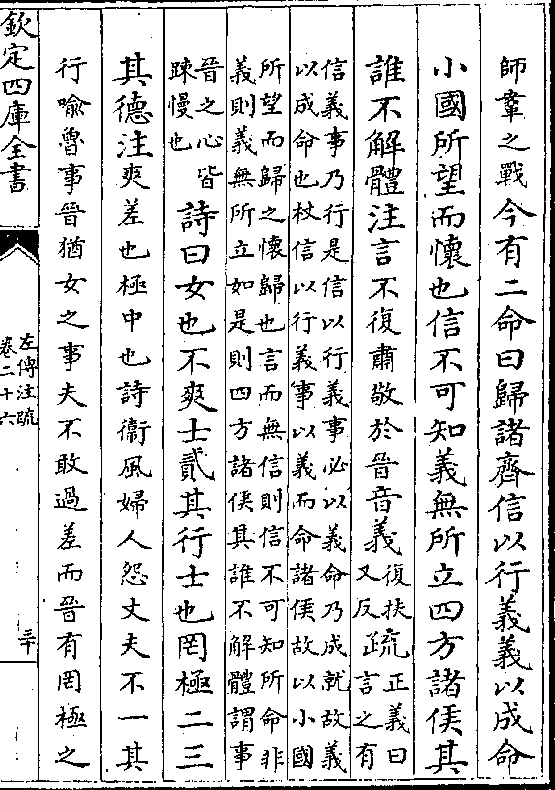 師鞌之戰今有二命曰歸諸齊信以行義義以成命
小國所望而懷也信不可知義無所立四方諸侯其
誰不解體注言不復肅敬於晉音義復扶又反疏正義曰言之有
信義事乃行是信以行義事必以義命乃成就故義
以成命也杖信以行義事以義而命諸侯故以小國
所望而歸之懷歸也言而無信則信不可知所命非
義則義無所立如是則四方諸侯其誰不解體謂事
晉之心皆踈慢也詩曰女也不爽士貳其行士也罔極二三
其德注爽差也極中也詩衛風婦人怨丈夫不一其
行喻魯事晉猶女之事夫不敢過差而晉有罔極之
欽定四庫全書
左傳注疏
卷二十六
三十